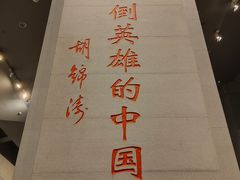 倒英雄的中国
胡锦涛